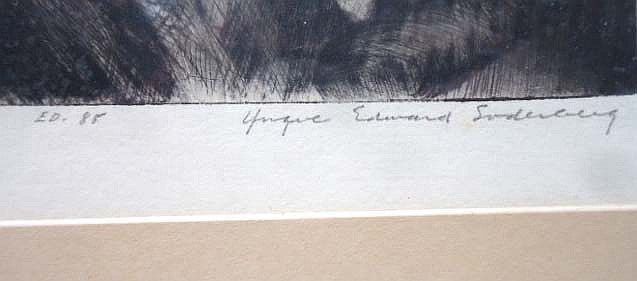 ED. 85 Yngve Edward Soderberg